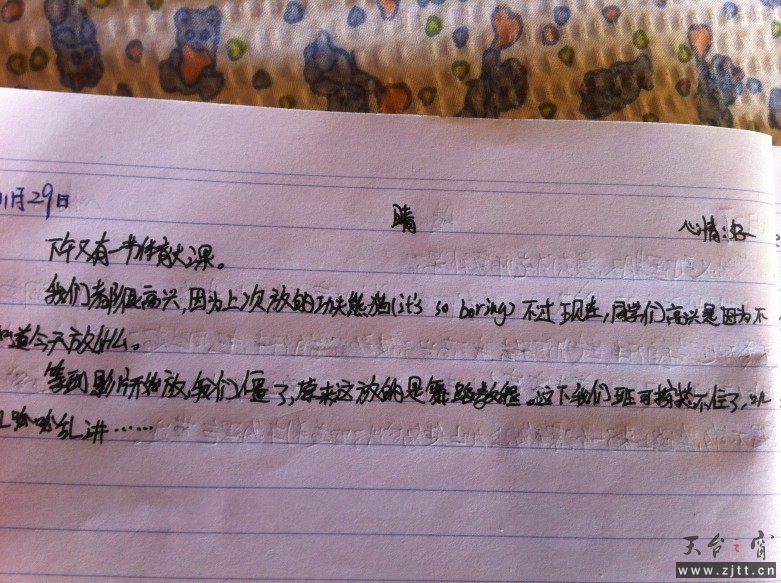 11月29日 晴 心情:好
下午又有一节体育大课。
我们都很高兴,因为上次放的功夫熊猫(it's so boring)不过现在,同学们高兴是因为不
知道今天放什么。
等到影片开始放,我们傻了,原来这放的是舞蹈教程。这下我们班可按捺不住了,
哈哈乱讲……
天台之窗
www.zjtt.cn